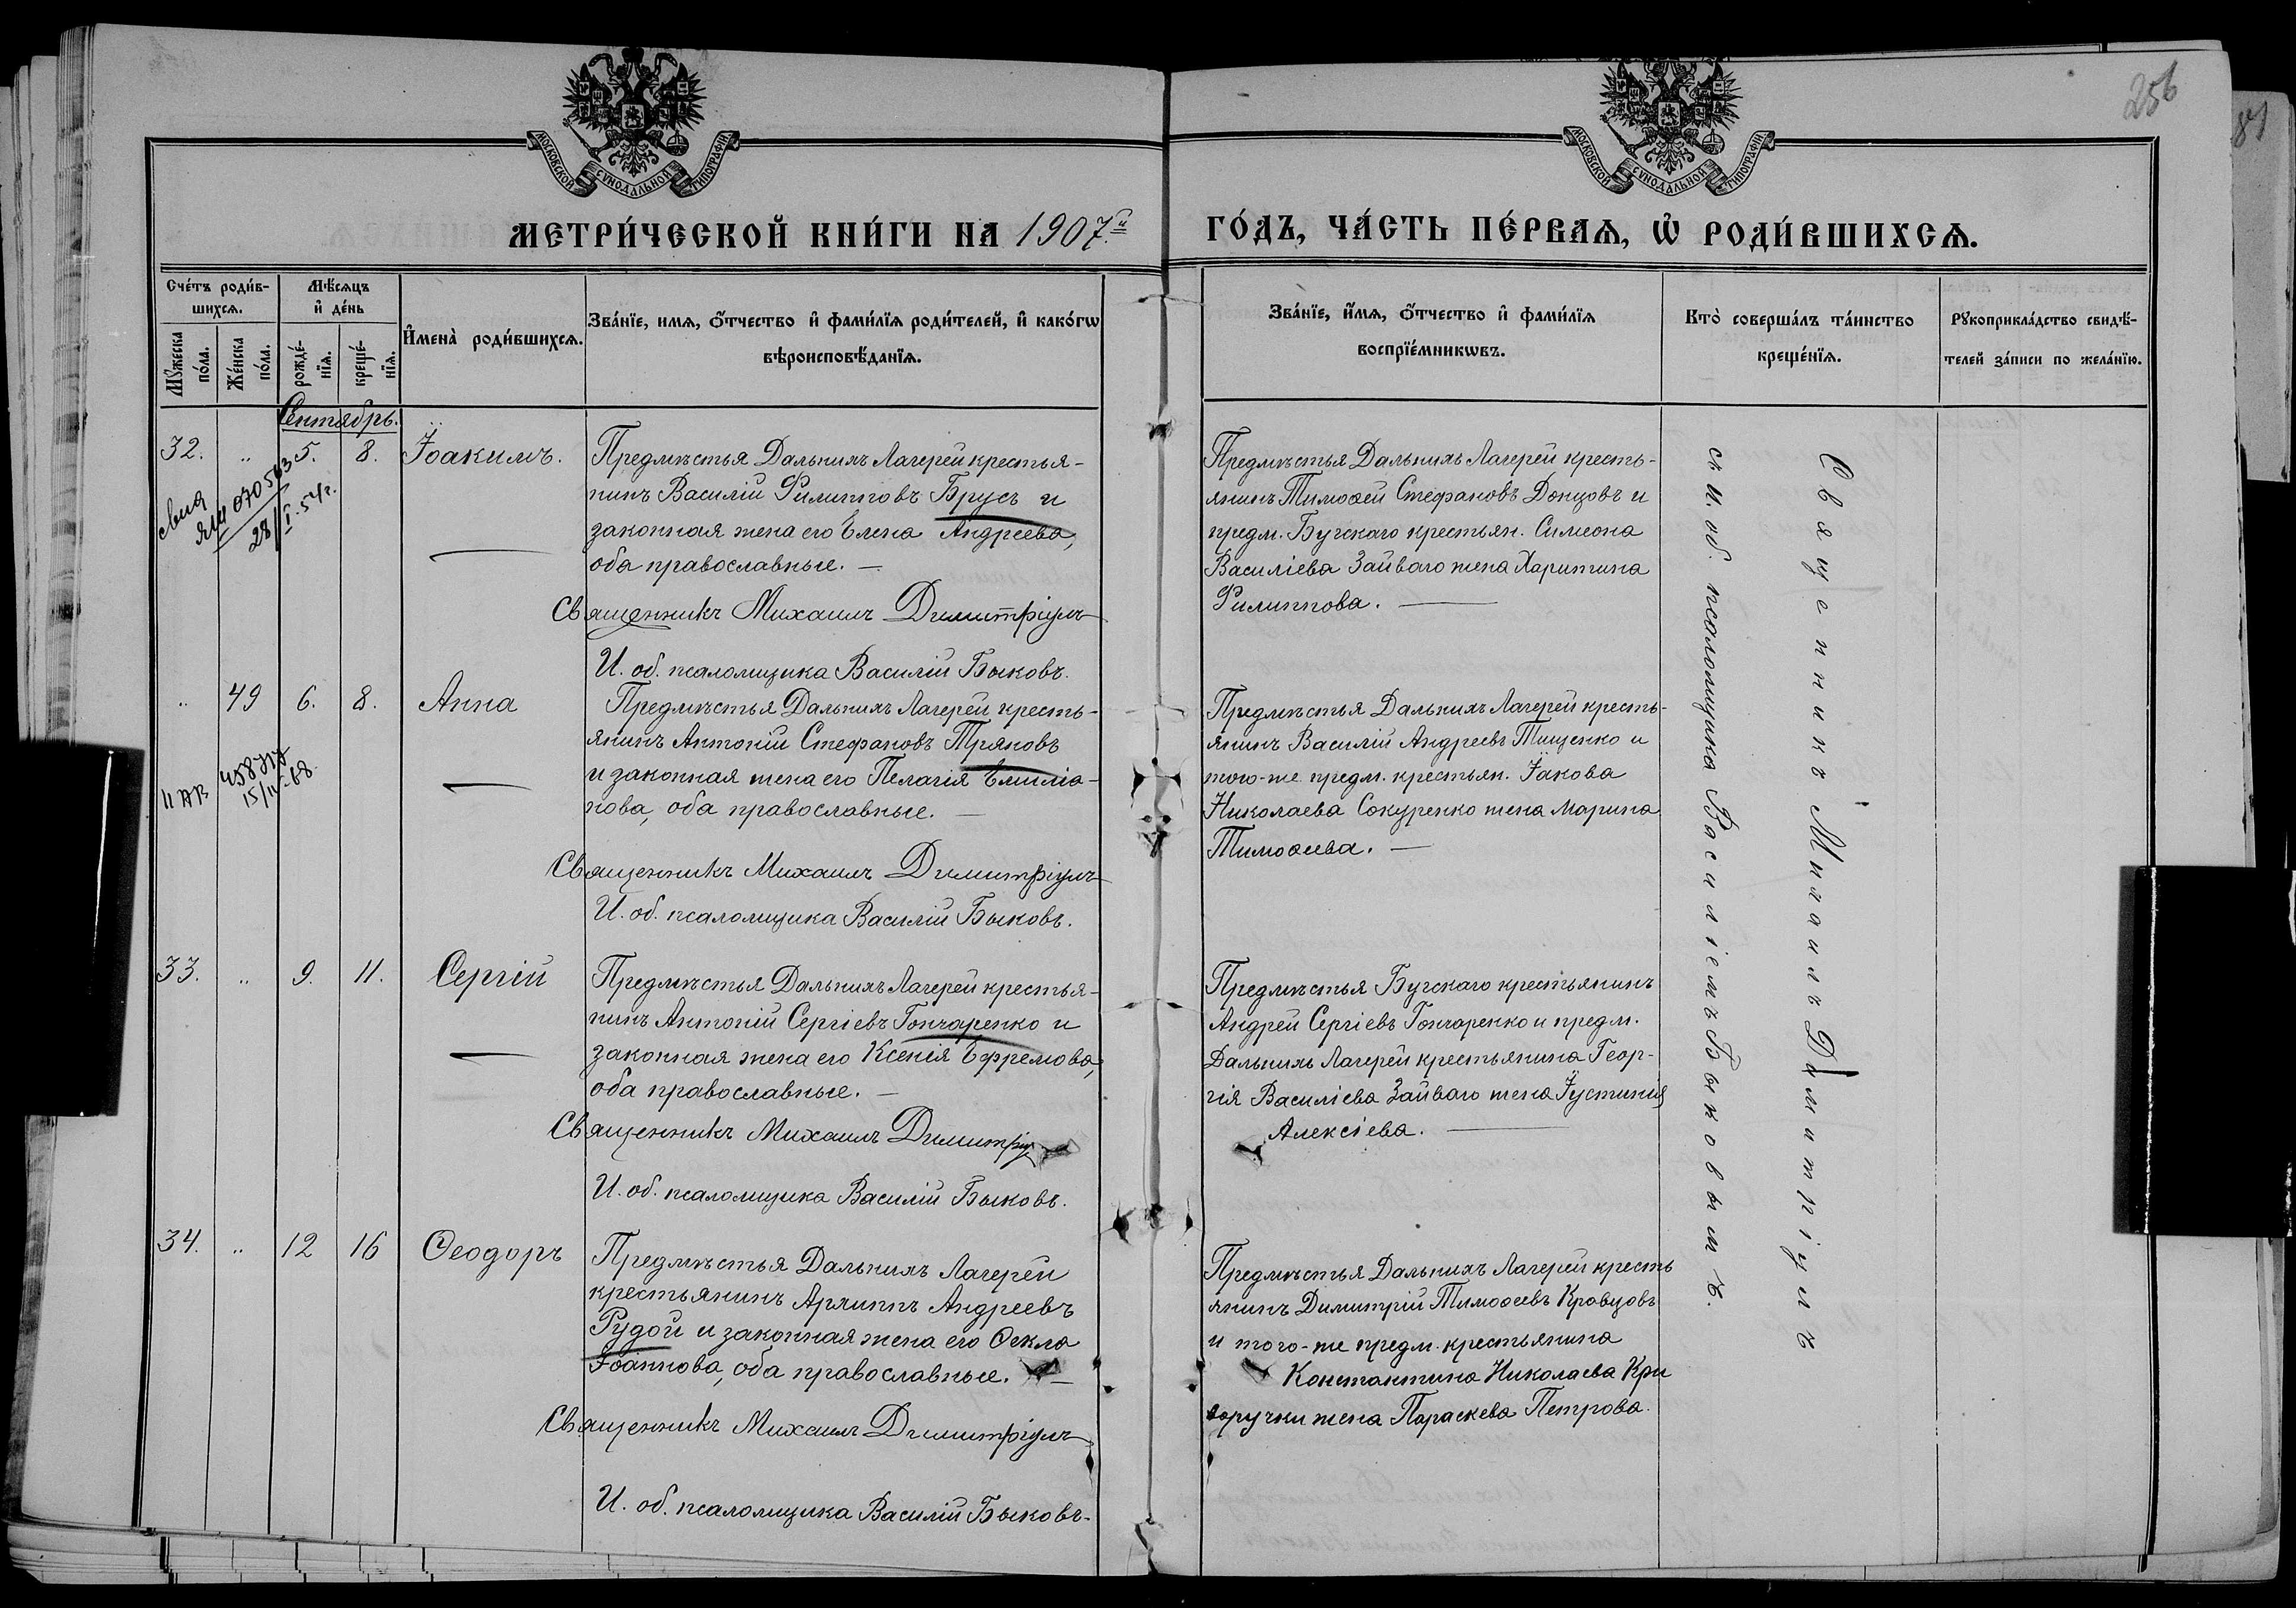 256
МОСКОВСКОЙ СѴНОДАЛЬНОЙ ТИПОГРАФІИ
МОСКОВСКОЙ СѴНОДАЛЬНОЙ ТИПОГРАФІИ
МЕТРИ́ЧЕСКОЙ КНИ́ГИ НА 1907й
ГО́ДЪ, ЧА́СТЬ ПЕ́РВАѦ, Ѡ҆ РОДИ́ВШИХСѦ.
Сче́тъ роди́в-
шихсѧ.
Мѣ́сѧцъ
и҆ де́нь
Мꙋ́жеска
по́ла.
Же́нска
по́ла.
рожде́-
нїѧ.
креще́-
нїѧ.
И҆мена̀ роди́вшихсѧ.
Зва́нїе, имѧ, ѻ҆́тчество и҆ фами́лїѧ роди́телей, и҆ како́гѡ
вѣроисповѣ́данїѧ.
Зва́нїе, и҆́мѧ, ѻ҆́тчество и҆ фами́лїѧ
воспрїе́мникѡвъ.
Кто̀ соверша́лъ та́инство
креще́нїѧ.
Рꙋкоприкла́дство свидѣ́-
телей за́писи по жела́нїю.
Сентябрь.
32. „ 5. 8. Іоакимъ.
Предмѣстья Дальнихъ Лагерей крестья-
нинъ Василій Филипповъ Брусъ и
законная жена его Елена Андреева,
оба православные. —
Священникъ Михаилъ Димитріулъ
И. об. псаломщика Василій Быковъ.
Предмѣстья Дальнихъ Лагерей кресть-
янинъ Тимоѳей Стефановъ Донцовъ и
предм. Бугскаго крестьян. Симеона
Василіева Зайваго жена Харитина
Филиппова. —
28/I-54г.
„ 49 6. 8. Анна
Предмѣстья Дальнихъ Лагерей кресть-
янинъ Антоній Стефановъ Тряновъ
и законная жена его Пелагія Емиліа-
нова, оба православные. —
Священникъ Михаилъ Димитріулъ
И. об. псаломщика Василій Быковъ.
Предмѣстья Дальнихъ Лагерей кресть-
янинъ Василій Андреевъ Тищенко и
того-же предм. крестьян. Іакова
Николаева Сокуренко жена Марина
Тимоѳеева. —
33. „ 9. 11. Сергій
Предмѣстья Дальнихъ Лагерей крестья-
нинъ Антоній Сергіевъ Гончаренко и
законная жена его Ксенія Ефремова,
оба православные. —
Священникъ Михаилъ Димитріу
И. об. псаломщика Василій Быковъ.
Предмѣстья Бугскаго крестьянинъ
Андрей Сергіевъ Гончаренко и предм.
Дальнихъ Лагерей крестьянина Геор-
гія Василіева Зайваго жена Іустинія
Алексіева. —
34. „ 12 16 Ѳеодоръ
Предмѣстья Дальнихъ Лагерей
крестьянинъ Архиппъ Андреевъ
Рудой и законная жена его Ѳекла
Іоаннова, оба православные. —
Священникъ Михаилъ Димитріулъ
И. об. псаломщика Василій Быковъ.
Предмѣстья Дальнихъ Лагерей кресть
янинъ Димитрій Тимоѳеевъ Кравцовъ
и того-же предм. крестьянина
Константина Николаева Кри
воручки жена Параскева Петрова.
Священникъ Михаилъ Димитріулъ
съ и. об. псаломщика Василіемъ Быковымъ.